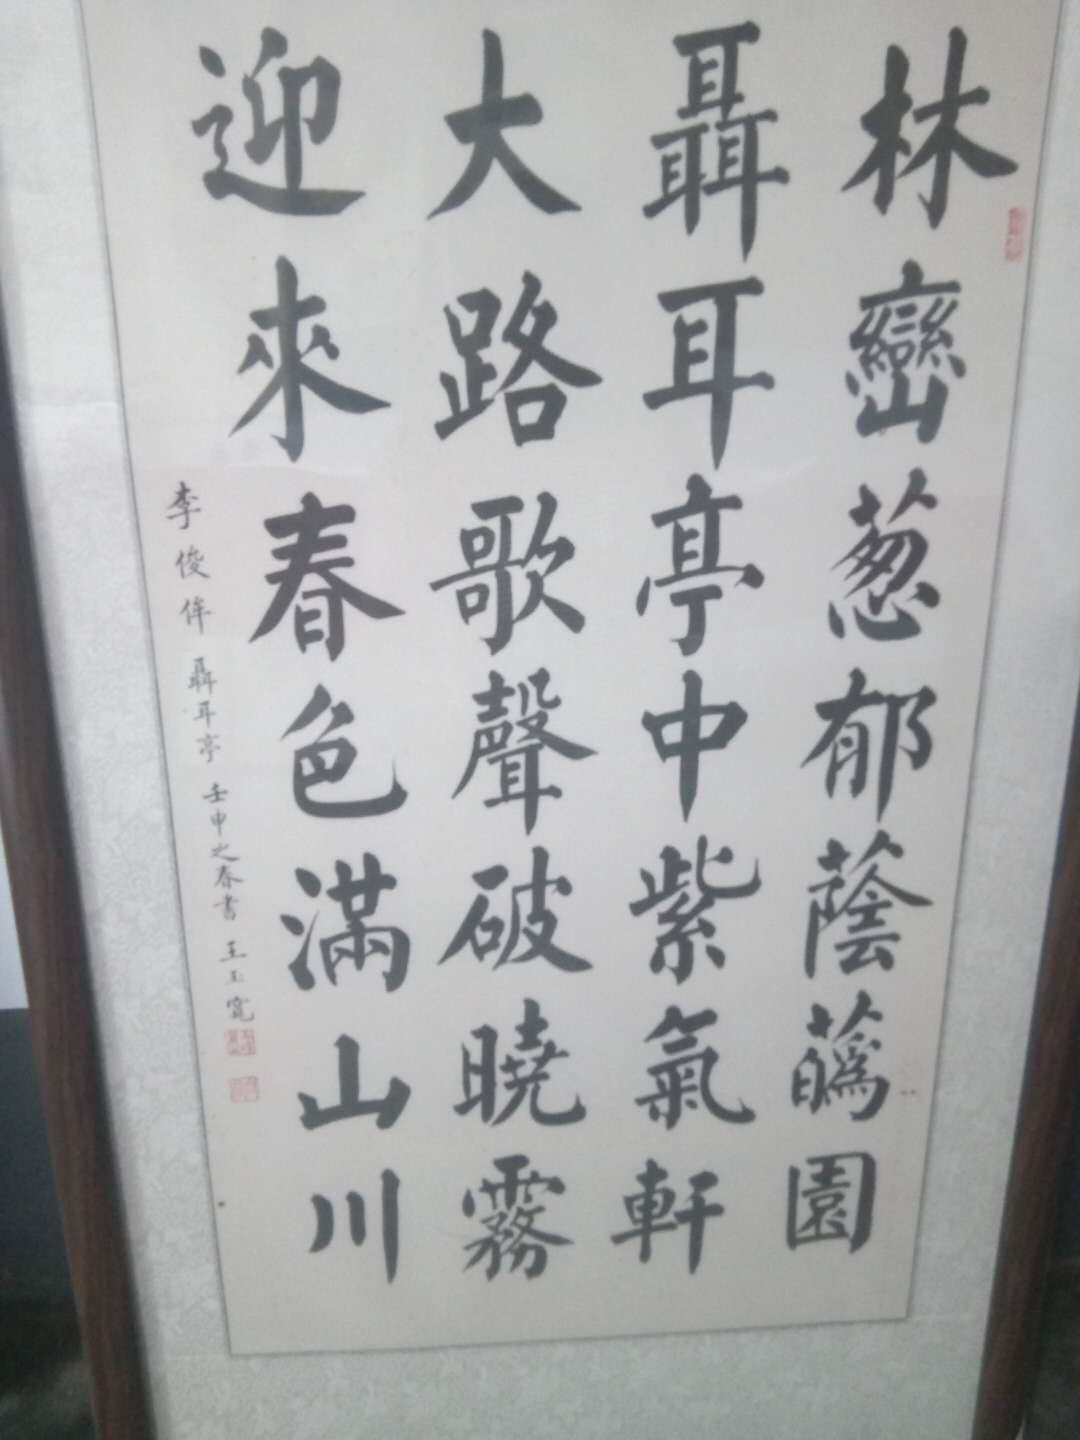 林巒葱郁蔭蔿園
聶耳亭中紫氣軒
大路歌聲破曉霧
迎來春色滿山川
李俊侔 聶耳亭 壬申之春書 王玉寬